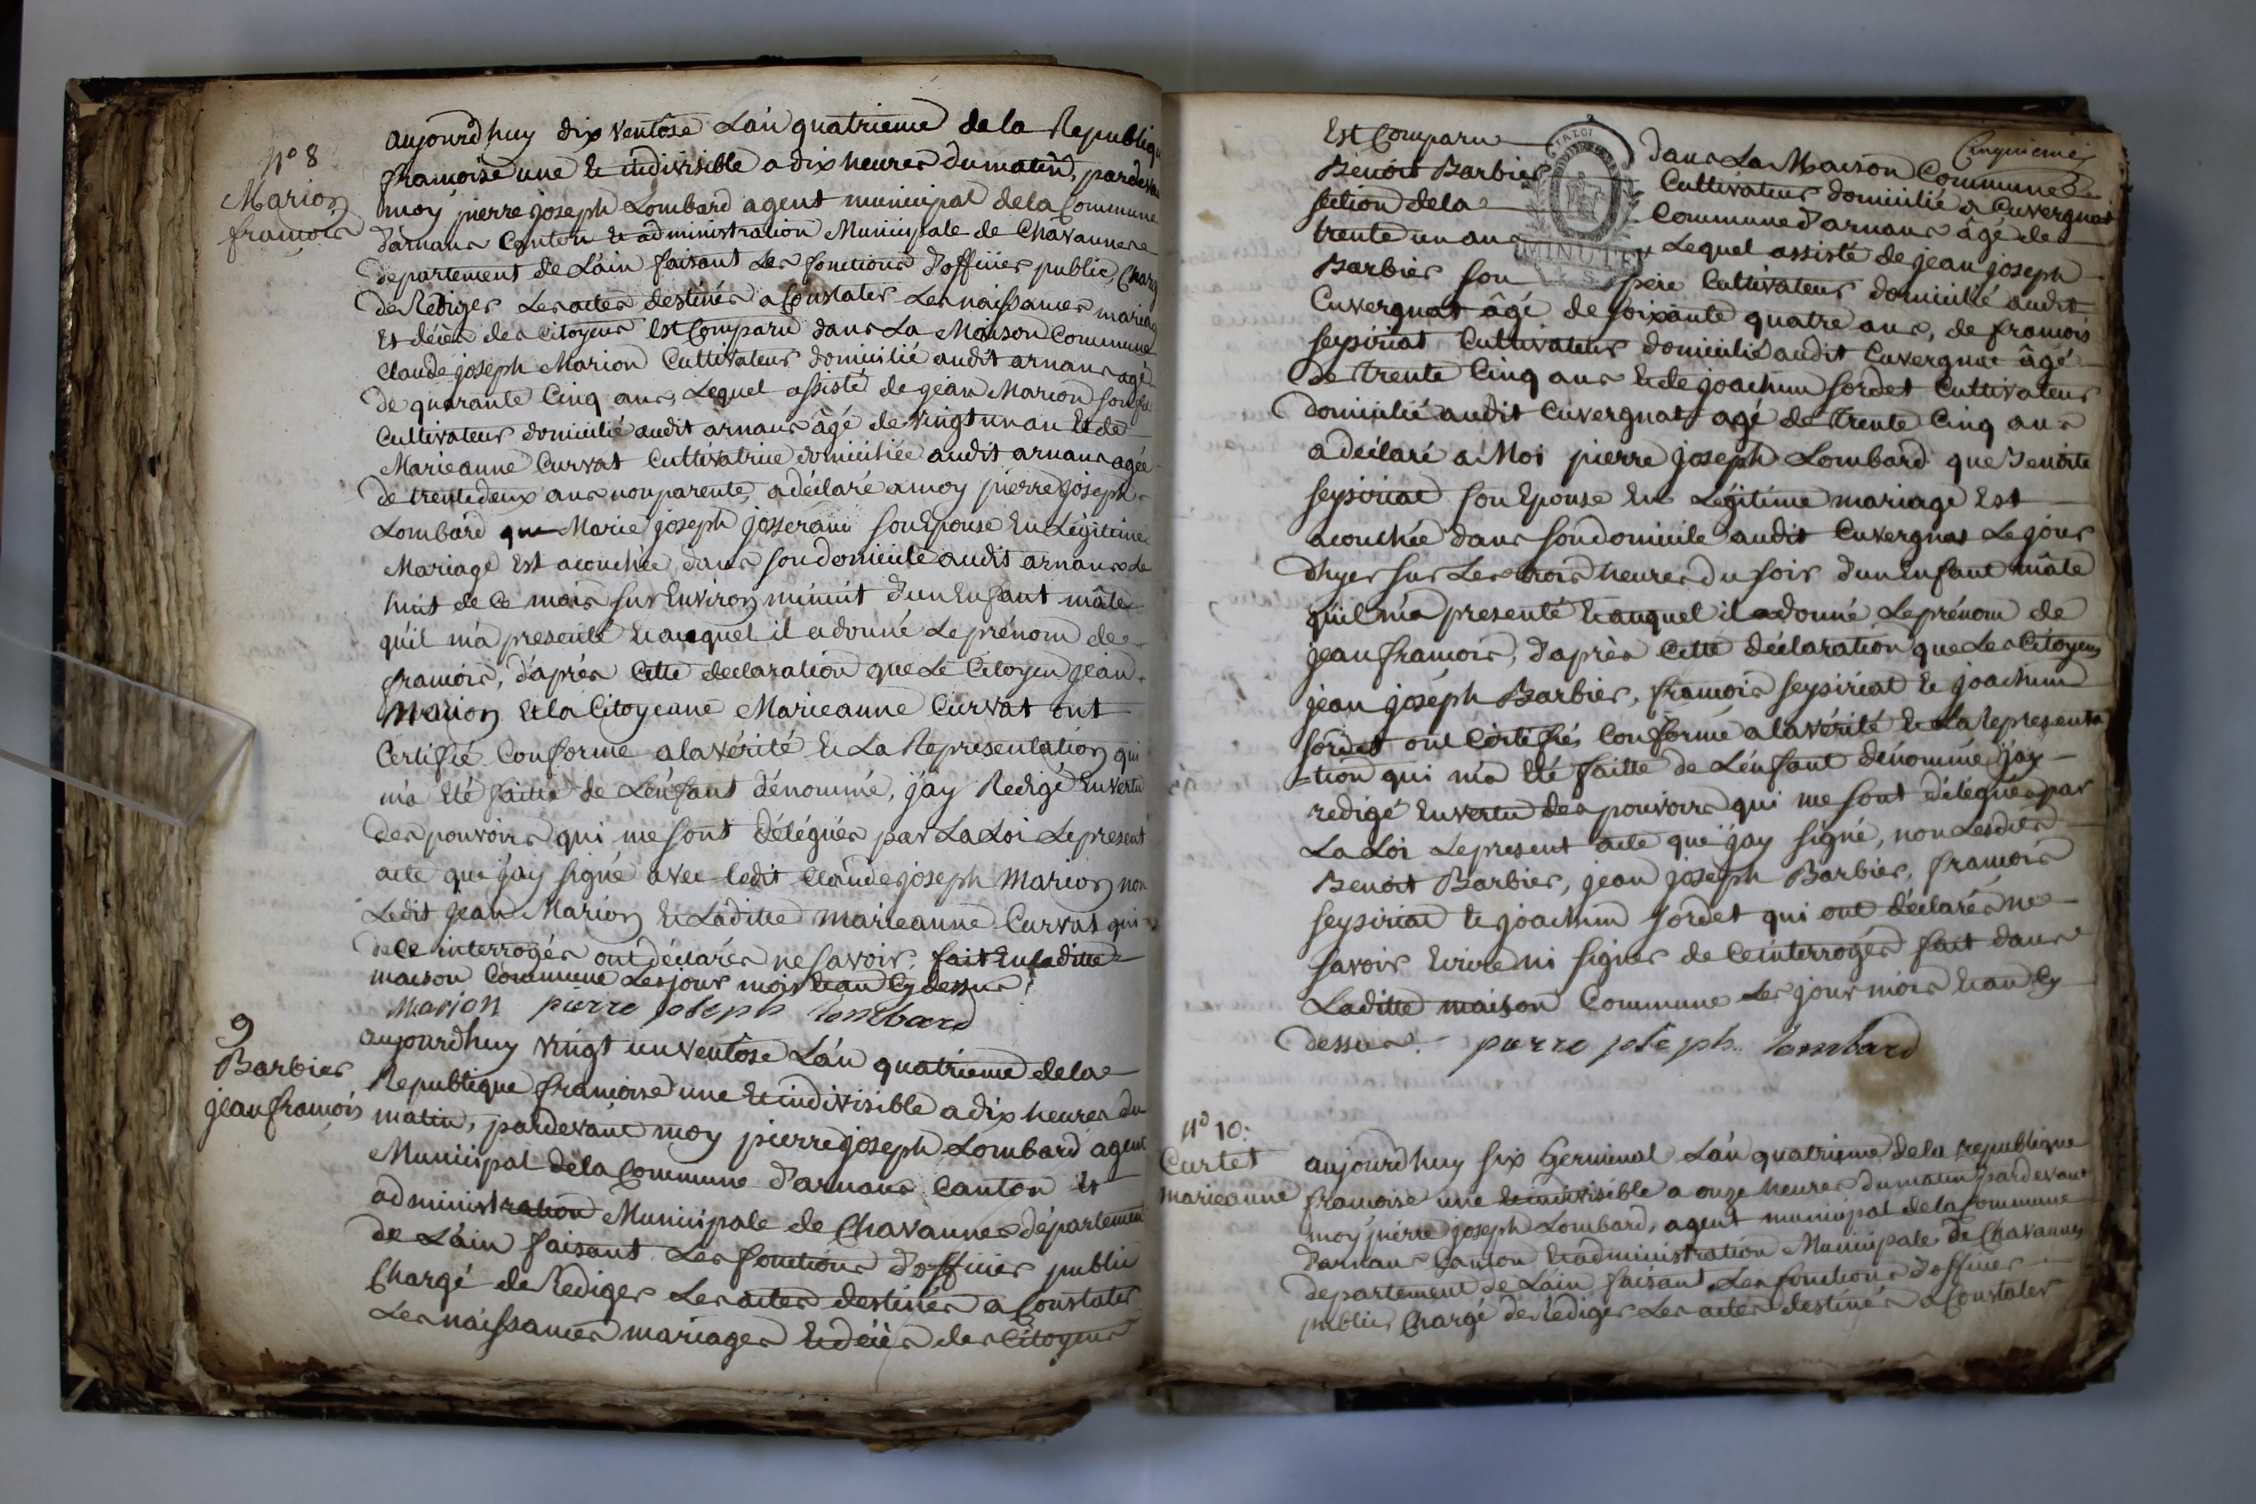 N° 8
Marion
françois
aujourd'huy dix ventôse L'an quatrieme de la Republique
françoise une et indivisible a dix heures du matin, pardevant
moy pierre joseph Lombard agent municipal de la Commune
d'arnans Canton et administration Municipale de Chavannes
departement de L'ain faisant Les fonctions d'officier public, Chargé
de Rediger Les actes destinés a Constater Les naissances mariages
Et décès des Citoyens Est Comparu dans La Maison Commune
Claude joseph Marion Cultivateur domicilié audit arnans agé
de quarante Cinq ans, Lequel assisté de jean Marion son
Cultivateur domicilié audit arnans âgé de vingt un an et de
Marieanne Curvat Cultivatrice domiciliée audit arnans agée
de trente deux ans non parente, a déclaré a moy pierre joseph
Lombard que Marie joseph josserand son Epouse En Légitime
Mariage Est acouchée dans son domicile audit arnans Le
huit de Ce mois sur Environ minuit d'un Enfant mâle
qu'il m'a presenté Et auquel il a donné Le prénom de
françois, d'après Cette declaration que Le Citoyen jean
Marion Et la Citoyenne Marieanne Curvat ont
Certifié Conforme a la vérité Et La Representation qui
m'a Eté faitte de L'enfant dénommé, j'ay Redigé En vertu
des pouvoirs qui me sont délégués par La Loi Le present
acte que j'ay signé avec ledit Claude joseph Marion non
Ledit jean Marion Et Laditte marieanne Curvat qui
de Ce interrogés ont déclarés ne savoir. fait En laditte
maison Commune Les jour mois Et an Cy dessus.
Marion pierre joseph lombard
9
Barbier
jean françois
aujourd'huy vingt un ventôse L'an quatrieme de la
Republique françoise une Et indivisible a dix heures du
matin, pardevant moy pierre joseph Lombard agent
Municipal de la Commune d'arnans Canton Et
administration Municipale de Chavannes département
de L'ain faisant Les fonctions d'officier public
Chargé de Rediger Les actes destinés a Constater
Les naissances mariages Et décès des Citoyens
Cinquieme
Est Comparu dans La Maison Commune
Benoit Barbier Cultivateur domicilié a Cuvergnat
section de la Commune d'arnans âgé de
trente un ans Lequel assisté de jean joseph
MINUTE
Barbier son père Cultivateur domicilié audit
Cuvergnat âgé de soixante quatre ans, de françois
seysiriat Cultivateur domicilié audit Cuvergnat âgé
de trente Cinq ans Et de joachim sordet Cultivateur
domicilié audit Cuvergnat agé de trente Cinq ans
a déclaré a Moi pierre joseph Lombard que
seysiriat son Epouse En Légitime mariage Est
acouchée dans son domicile audit Cuvergnat Le jour
d'hyer sur Les trois heures du soir d'un Enfant mâle
qu'il m'a presenté Et auquel il a donné Le prénom de
jean françois, d'après Cette déclaration que Les Citoyens
jean joséph Barbier, françois seysiriat Et joachim
sordet ont Certifiés Conforme a la vérité Et La Representa
=tion qui m'a Eté faitte de L'enfant dénommé j'ay
redigé En vertu des pouvoirs qui me sont délégués par
La Loi Le present acte que j'ay signé, non Lesdits
Benoit Barbier, jean joseph Barbier, françois
seysiriat Et joachim sordet qui ont déclarés ne
savoir Ecrire ni signer de Ce interrogés fait dans
Laditte maison Commune Les jour mois Et an Cy
dessus. pierre joseph lombard
N° 10.
Curtet
marieanne
aujourd'huy six Germinal L'an quatrieme de la republique
françoise une Et indivisible a onze heures du matin pardevant
moy pierre joseph Lombard, agent municipal de la Commune
d'arnans Canton Et administration Municipale de Chavannes
departement de L'ain faisant Les fonctions d'officier
public Chargé de Rediger Les actes destinés a Constater